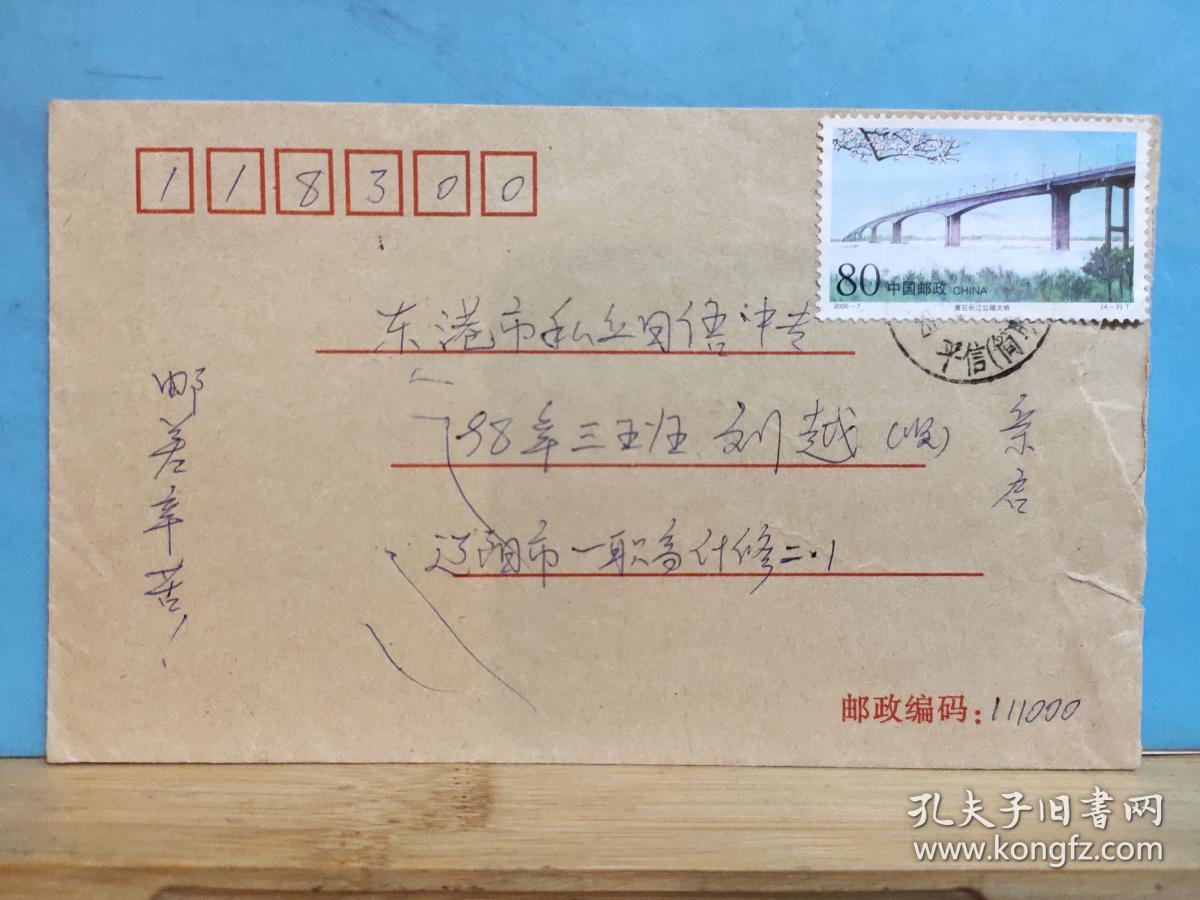 118300
80分 中国邮政 CHINA
2000-7 黄石长江公路大桥 (4-3)T
平信(简
东港市私立日语中专
98年三五班 刘越(收)
亲启
邮差辛苦!
辽阳市一职高计修二.1
邮政编码:111000
孔夫子旧书网
www.kongfz.com